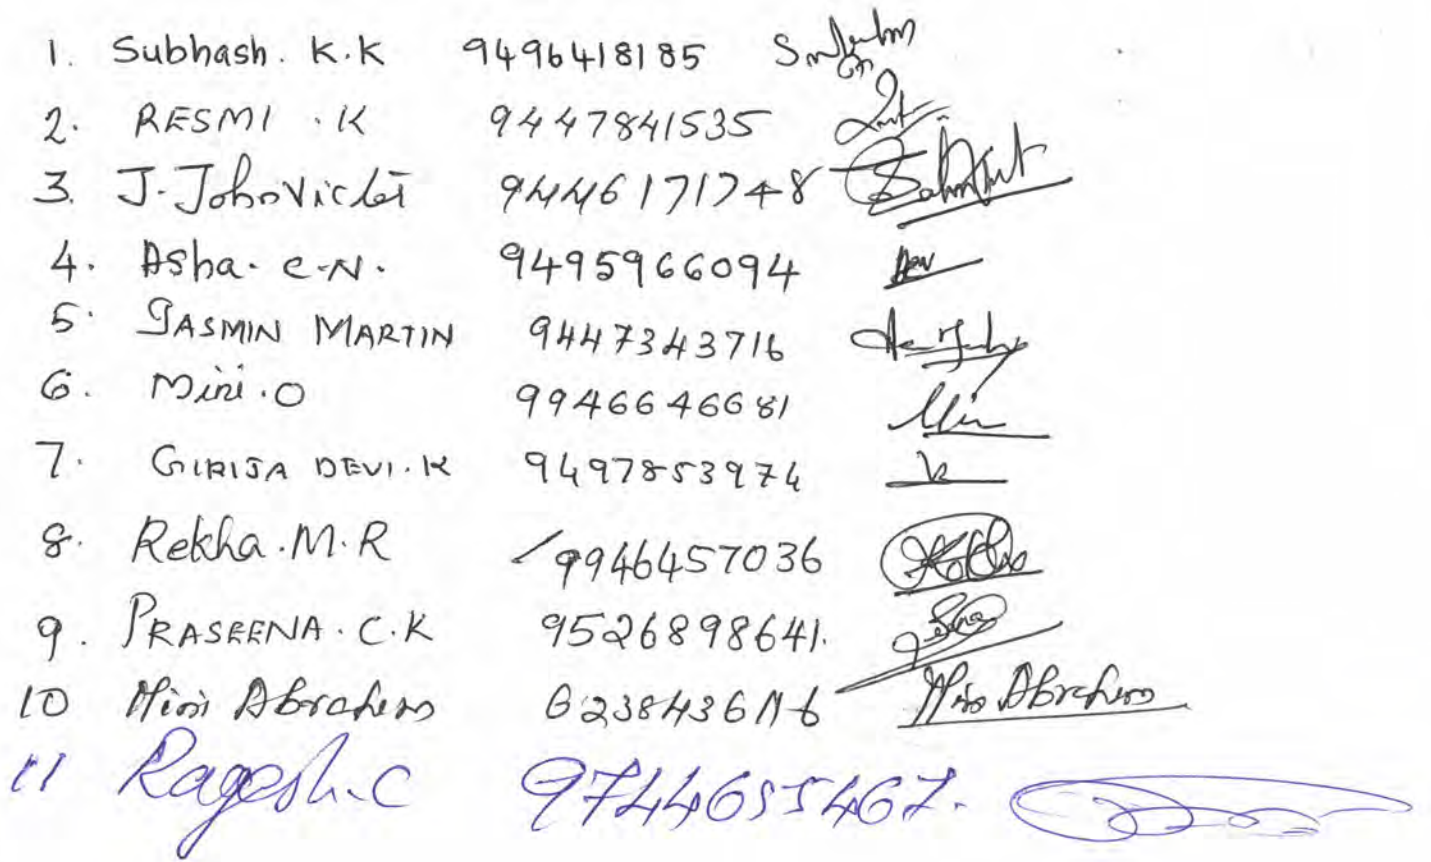 1. Subhash. K.K 9496418185
2. RESMI . K 9447841535
3. J. JohnVictor 9446171748
4. Asha. C.N. 9495966094
5. JASMIN MARTIN 9447343716
6. Mini.O 9946646681
7. GIRIJA DEVI.K 9497853974
8. Rekha.M.R 9946457036
9. PRASEENA.C.K 9526898641.
10 Mini Abraham 6238436116 Mini Abraham
11 Ragesh.C 9744655467.